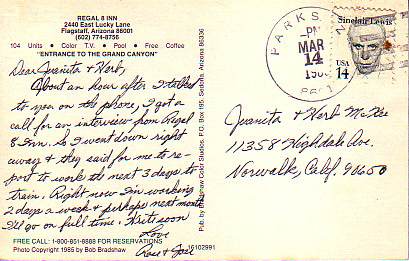 REGAL 8 INN
2440 East Lucky Lane
Flagstaff, Arizona 86001
(602) 774-8756
104 Units • Color T.V. • Pool • Free Coffee
"ENTRANCE TO THE GRAND CANYON"
Dear Juanita & Herb,
About an hour after I talked
to you on the phone, I got a
call for an interview from Regal
8 Inn. So I went down right
away & they said for me to re-
port to work the next 3 days to
train. Right now I'm working
2 days a week & perhaps next month
I'll go on full time. Write soon
Love
Rose & José
FREE CALL: 1-800-851-8888 FOR RESERVATIONS
Photo Copyright 1985 by Bob Bradshaw
16102991
Pub. by Bradshaw Color Studios, P.O. Box 195, Sedona, Arizona 86336
PARKS
PM
MAR
14
Sinclair Lewis
USA
14
Juanita & Herb McKee
11358 Highdale Ave.
Norwalk, Calif. 90650